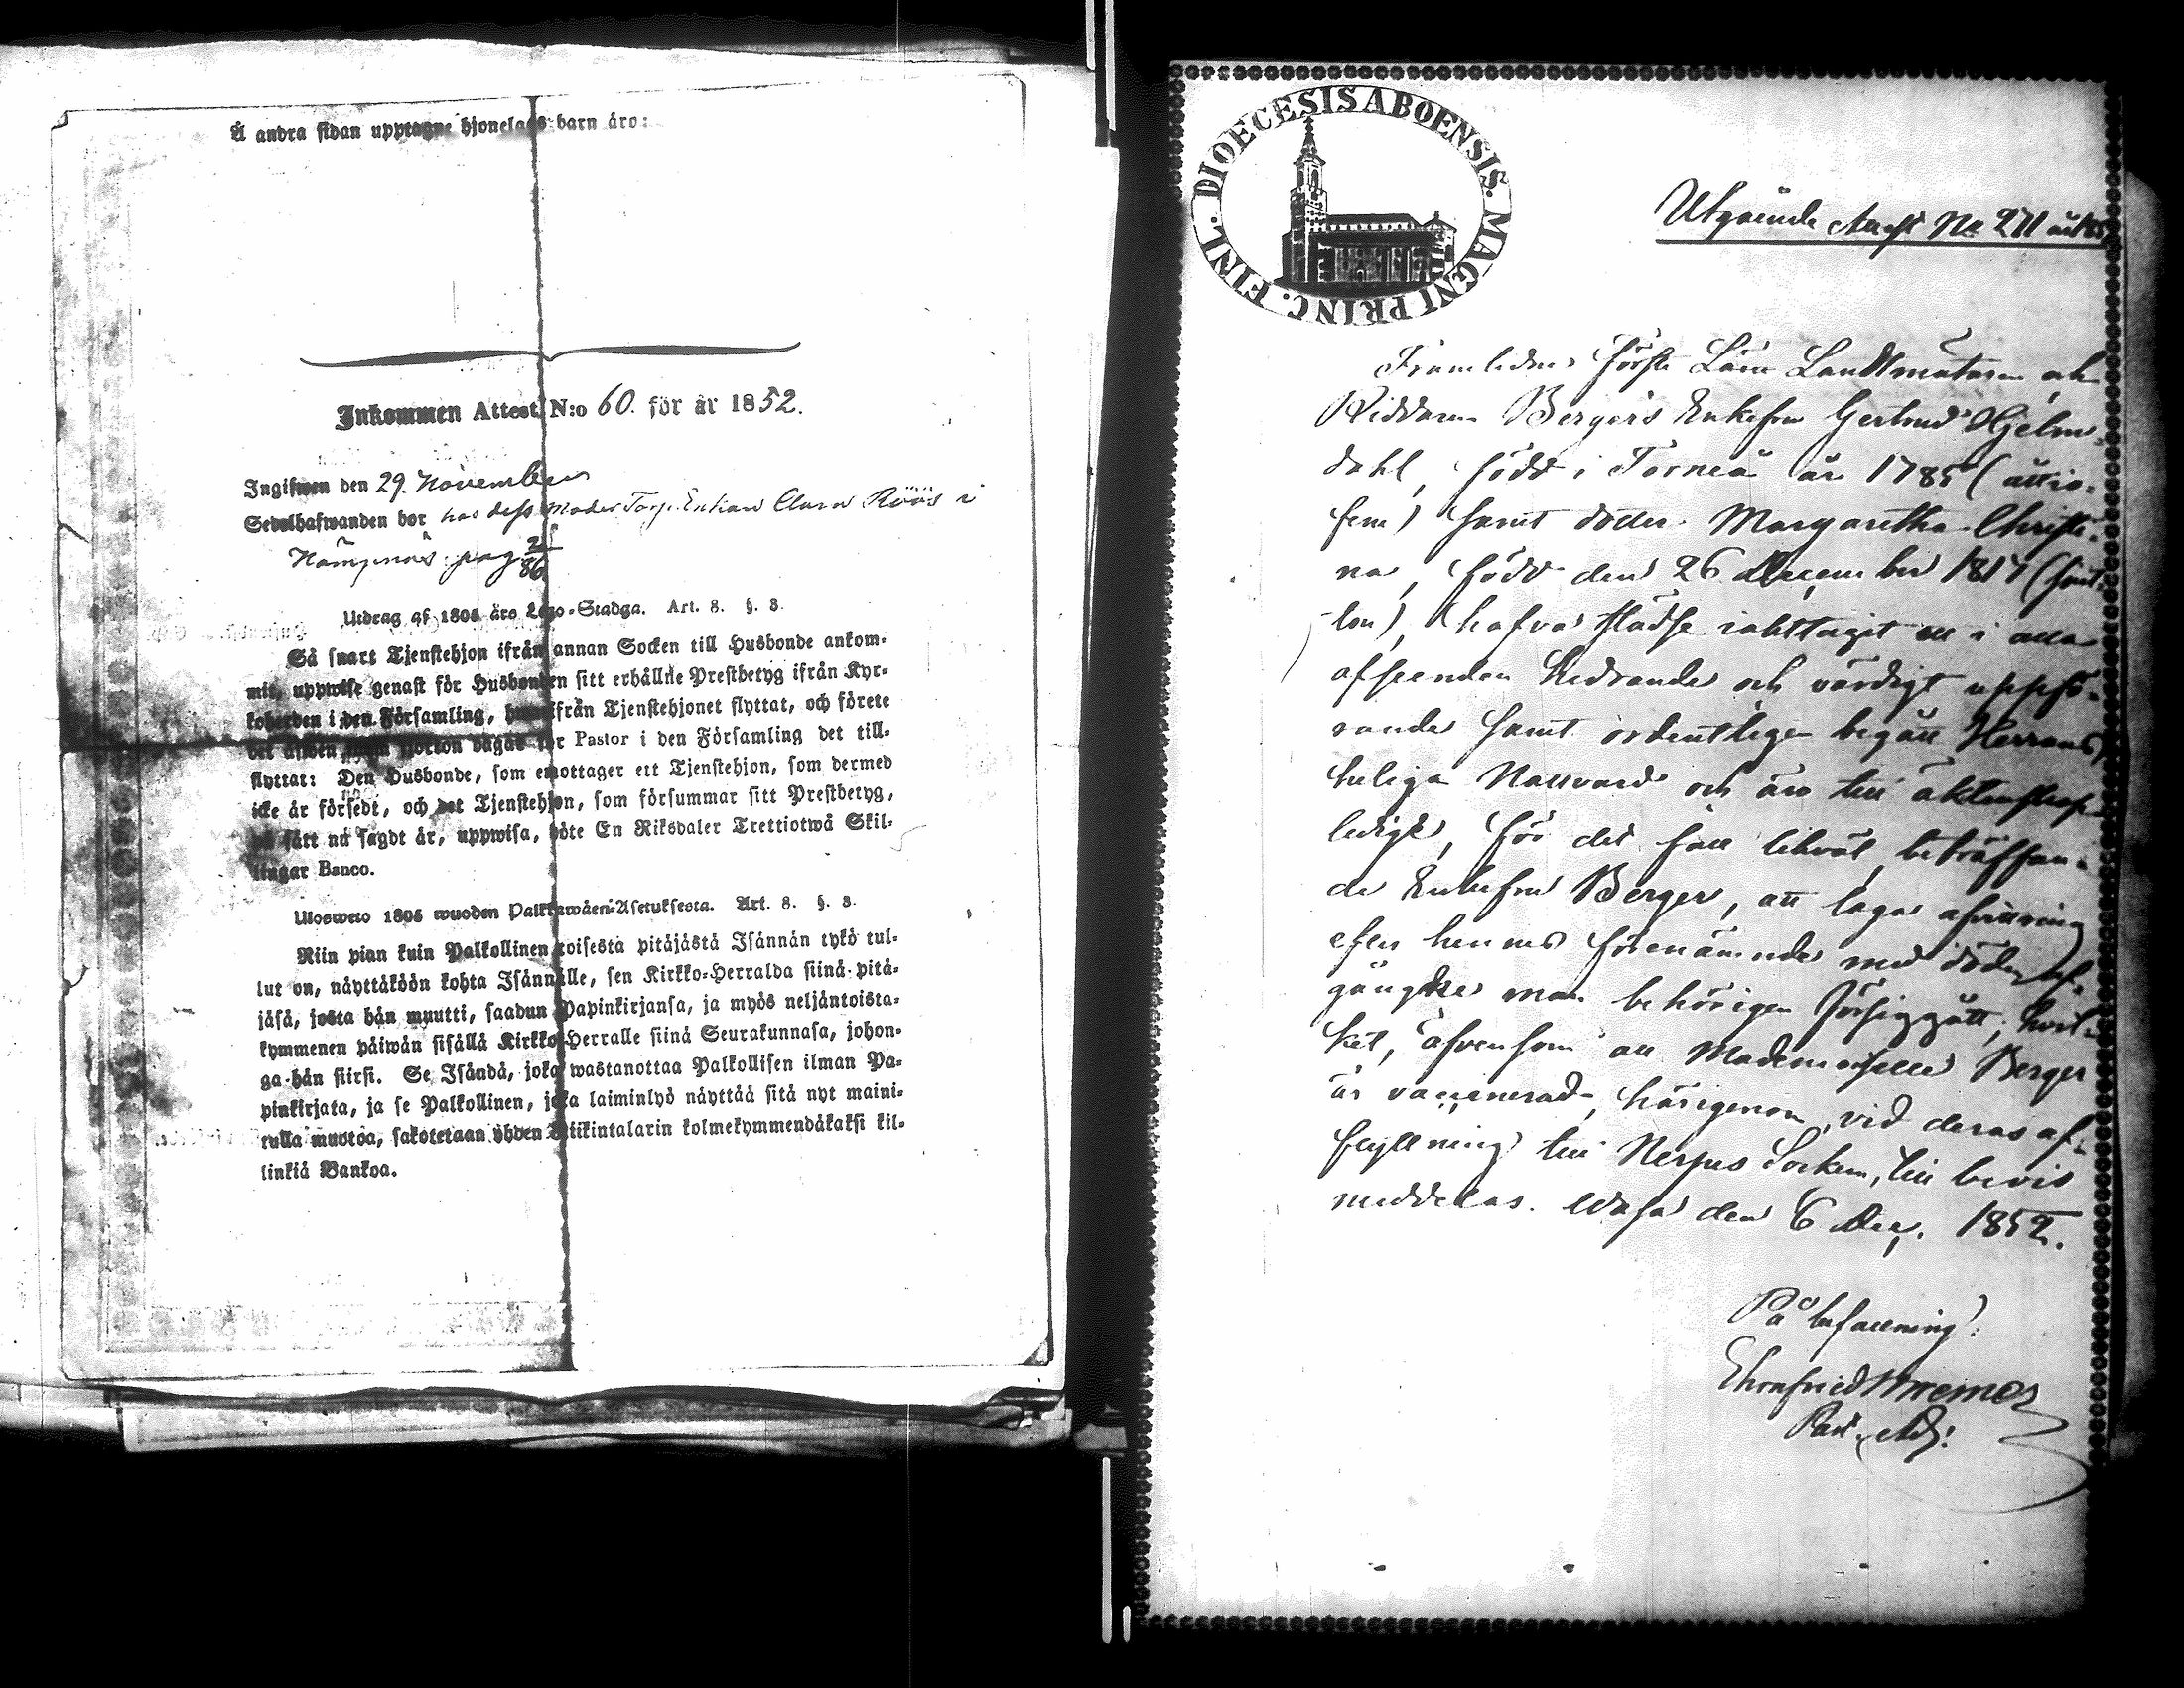 Å andra sidan upptagne hjonelags barn äro:
Inkommen Attest N:o 60. för år 1852.
Ingifwen den 29. November
Sedelhafwanden bor hos dess Moder Torp.Enkan Clara Röös i
Nämpnäs pag 2/86
Utdrag af 1805 års Lego-Stadga. Art. 8. §. 3.
Så snart Tjenstehjon ifrån annan Socken till Husbonde ankom-
mit, uppwise genast för Husbonden sitt erhållne Prestbetyg ifrån Kyr-
koherden i den Församling, ifrån Tjenstehjonet flyttat, och förete
det inom fjorton dagar för Pastor i den Församling det till-
flyttat: Den Husbonde, som emottager ett Tjenstehjon, som dermed
icke är försedt, och det Tjenstehjon, som försummar sitt Prestbetyg,
på sätt nu sagdt är, uppwisa, böte En Riksdaler Trettiotwå Skil-
lingar Banco.
Ulosweto 1805 wuoden Palkkawäen-Asetuksesta. Art. 8. §. 3.
Niin pian kuin Palkollinen toisesta pitäjästä Isännän tykö tul-
lut on, näyttäköön kohta Isännälle, sen Kirkko-Herralda siinä pitä-
jäsä, josta hän muutti, saadun Papinkirjansa, ja myös neljäntoista-
kymmenen päiwän sisällä Kirkko-Herralle siinä Seurakunnasa, johon-
ga hän siirsi. Se Isändä, joka wastanottaa Palkollisen ilman Pa-
pinkirjata, ja se Palkollinen, joka laiminlyö näyttää sitä nyt maini-
tulla muotoa, sakotetaan yhden Riikintalarin kolmekymmendäkaksi kil-
linkiä Bankoa.
DIOECESIS ABOENSIS. MAGNI PRINC. FINL.
Utgående Attest No 271
Framlidne Förste Läne Landtmätaren och
Riddaren Bergers Enkefru Gertrud Hjelm-
dahl, född i Torneå år 1785 (åttio-
fem) samt dotter Margaretha Christi-
na, född den 26 December 1817 (sjut-
ton), hafva städse iakttagit ett i alla
afseenden hedrande och värdigt uppfö-
rande samt ordentligen begått Herrans
heliga Nattvard och äro till äktenskap
lediga, för det fall likväl, beträffan-
de Enkefru Berger, att laga afvittring
efter hennes förenämnde med döden af-
gångne man behörigen försiggått; hvil-
ket, äfvensom att Mademoiselle Berger
är vaccinerad, härigenom, vid deras af-
flyttning till Nerpes Socken, till bevis
meddelas. Wasa den 6 Dec. 1852.
På befallning:
Ehrnfried
Past. Adj.